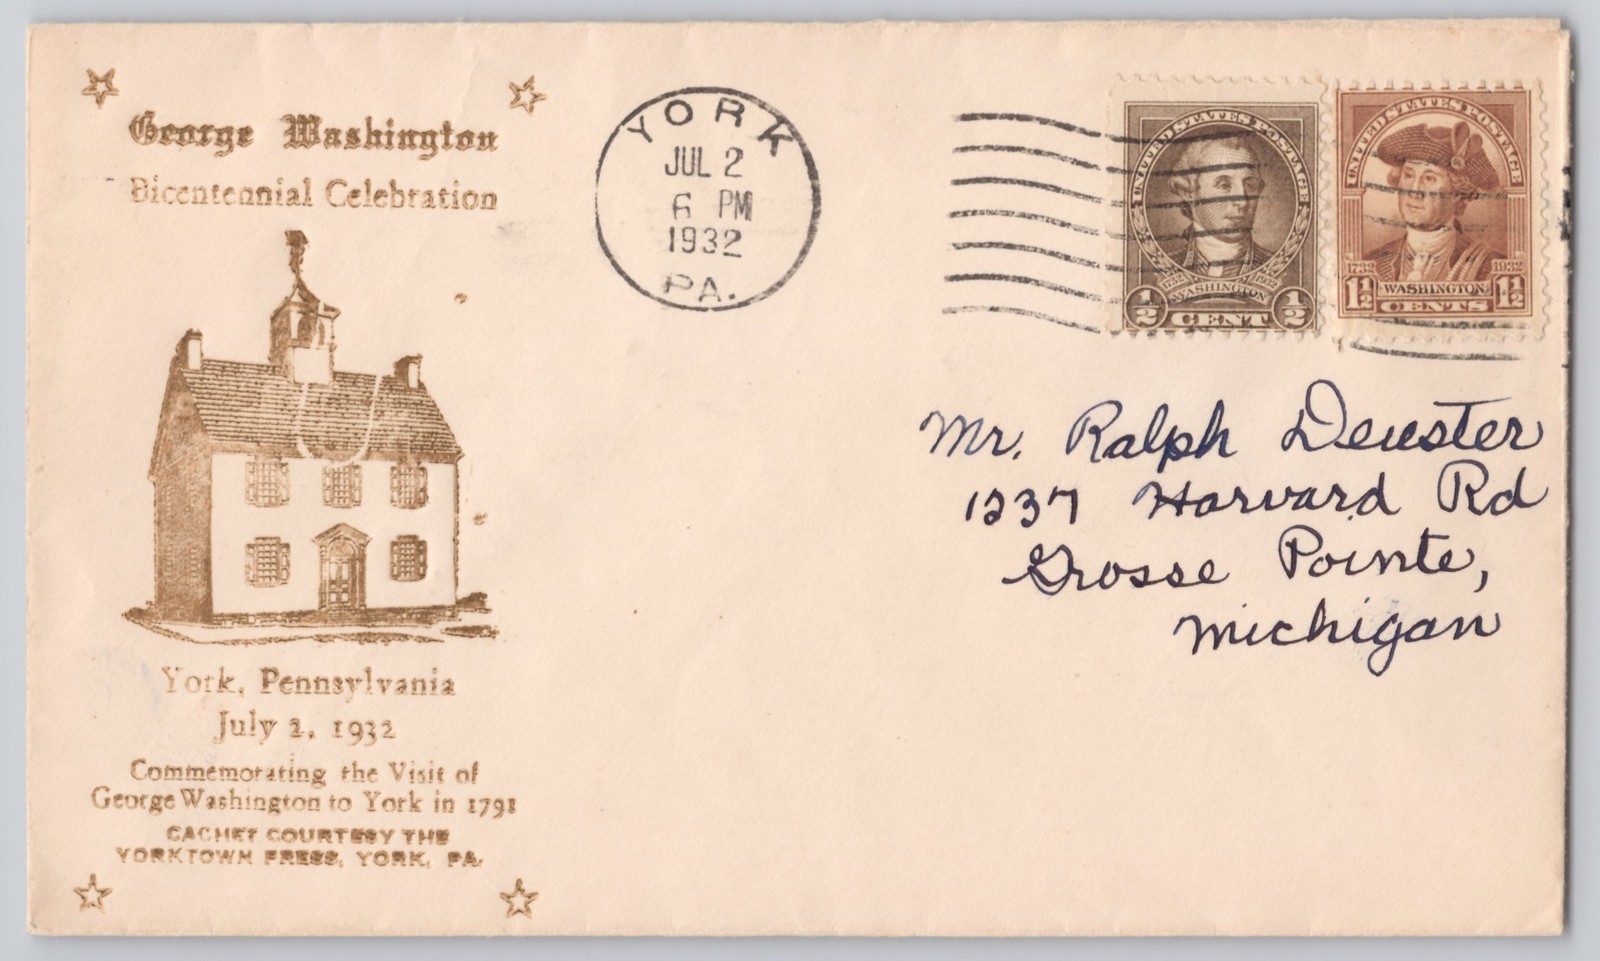 George Washington
Bicentennial Celebration
York, Pennsylvania
July 2, 1932
Commemorating the Visit of
George Washington to York in 1791
CACHET COURTESY THE
YORKTOWN PRESS, YORK, PA.
YORK
JUL 2
6 PM
1932
PA.
UNITED STATES POSTAGE
1732 WASHINGTON 1932
1/2 CENT 1/2
UNITED STATES POSTAGE
1732 1932
WASHINGTON
1 1/2 CENTS 1 1/2
Mr. Ralph Deuster
1237 Harvard Rd
Grosse Pointe,
Michigan